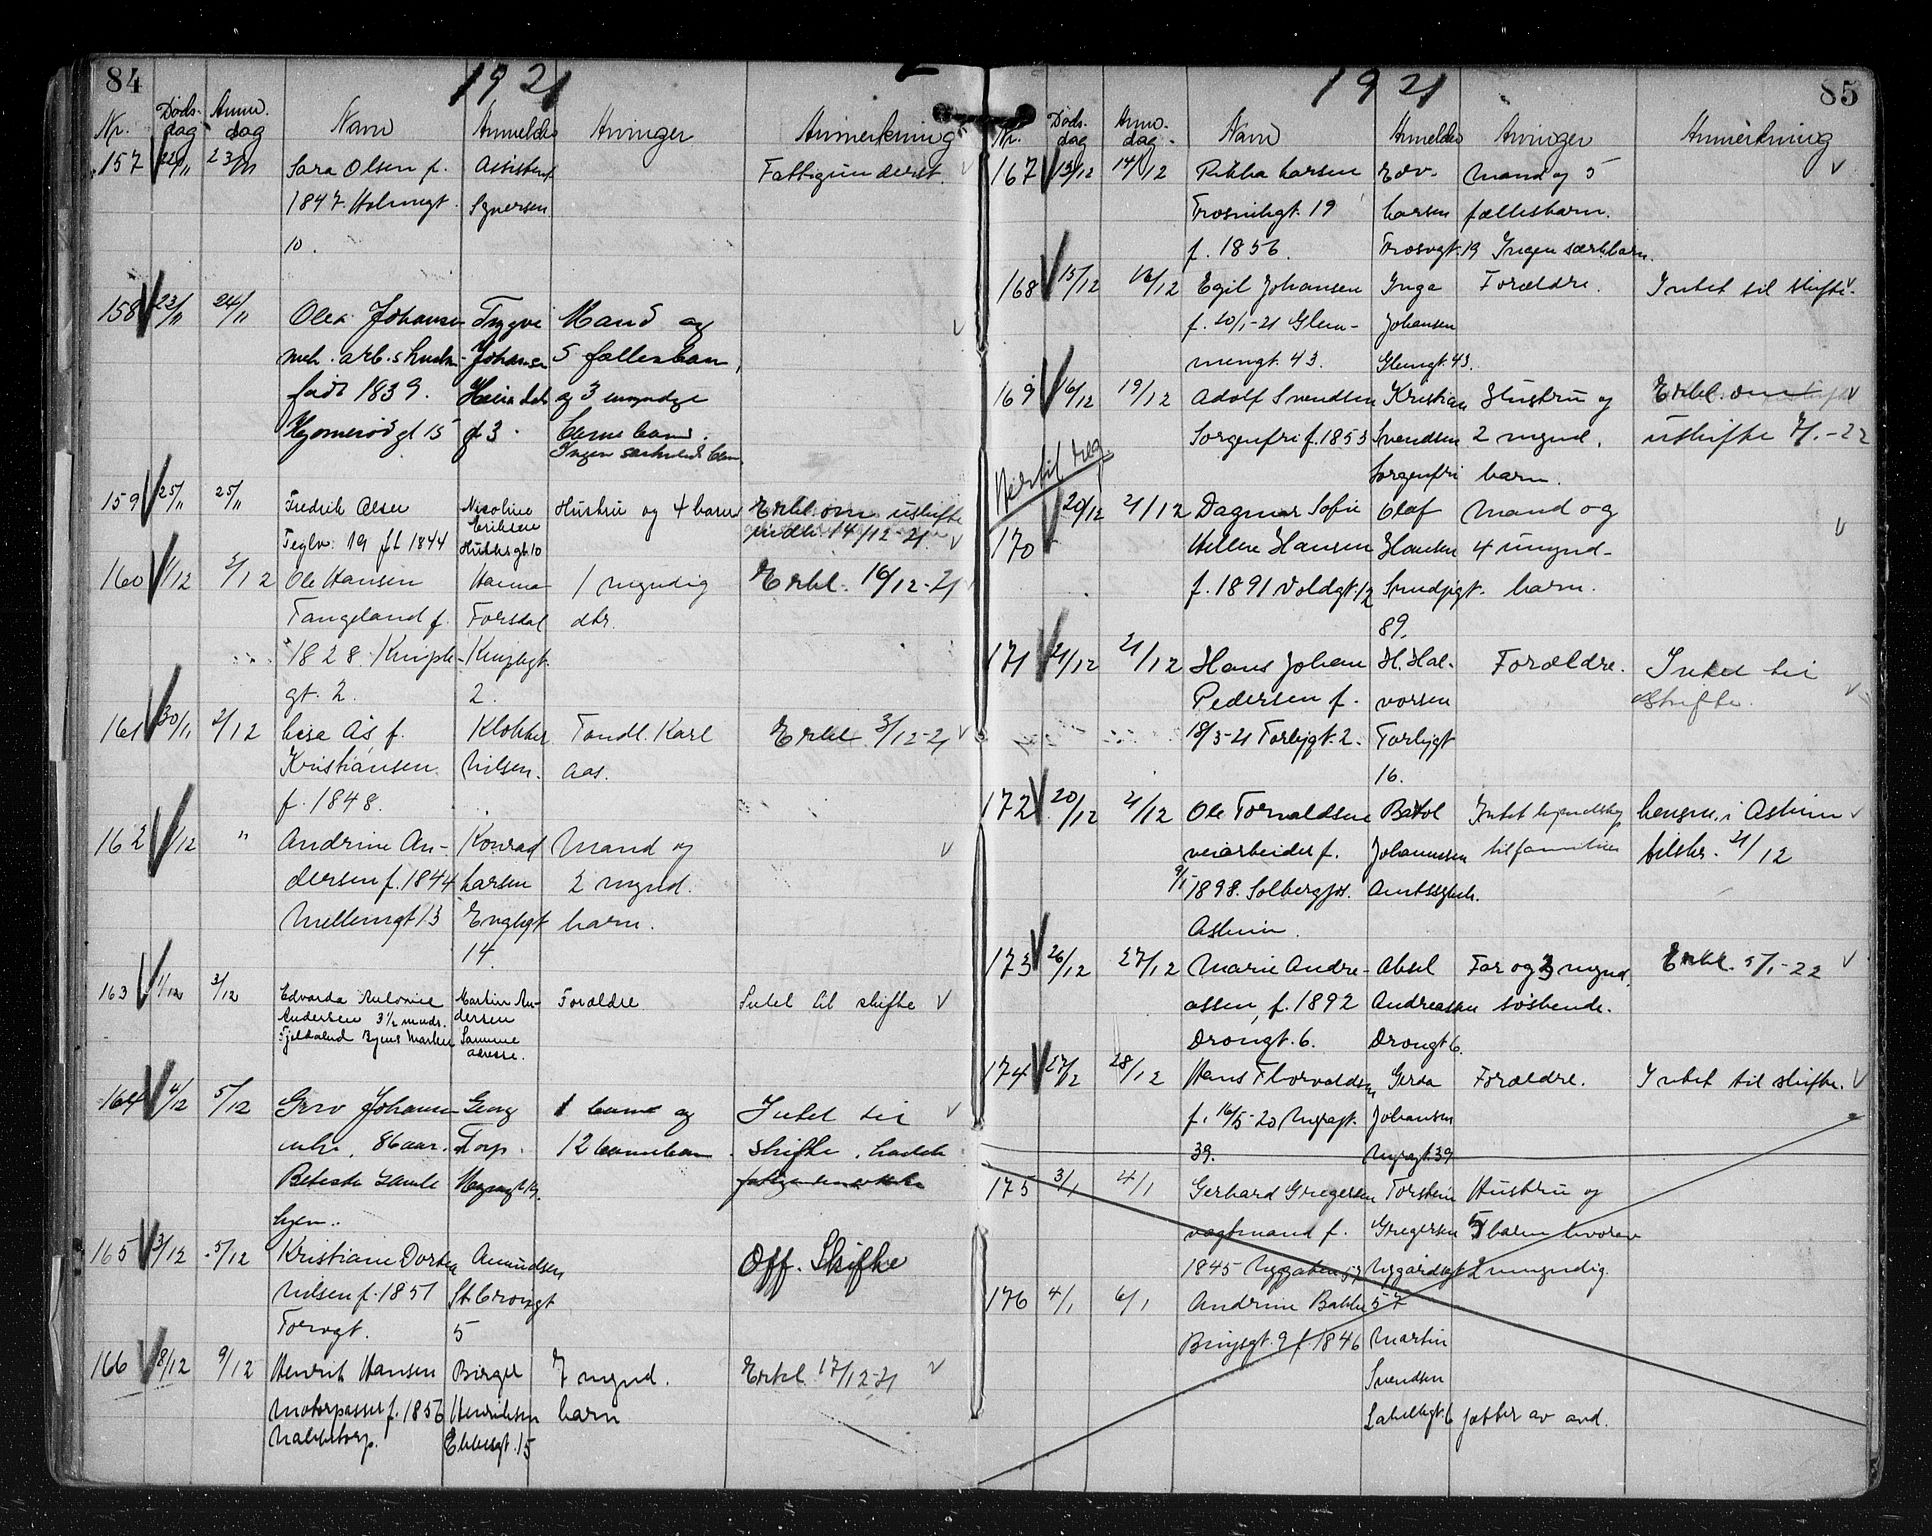 84
1921
Nr. Døds-dag Anm. dag Navn Anmelder Arvinger Anmerkning
157 22/11 23/11 Sara Olsen f. Assistent Fattigunderst.
1847 Holmegt. Syversen
10.
158 23/11 24/11 Johansen Trygve Mand og
mek. arb.s hustru Johansen 5 fællesbarn,
født 1839. og 3 umyndige
gt 15 gt 3. barnebarn.
Ingen
159 25/11 25/11 Fredrik Olsen Nicoline Hustru og 4 barn Erkl. om uskifte
Eriksen
Teglv. 19 ft 1844 gt. 10 14/12-21.
160 1/12 2/12 Ole Hansen Hanna 1 myndig Erkl. 16/12-21
Tangeland f. Torsdal dtr.
1828. Kniple- Kniplegt.
gt. 2. 2.
161 30/11 2/12 Lisa Ås f. Klokker Tandl. Karl Erkl. 3/12-21
Kristiansen Nilsen. Aas.
f. 1848.
162 1/12 " Andrine An- Konrad Mand og
dersen f. 1844 Larsen 2 mynd.
Mellemgt 13 Engligt barn.
14.
163 1/12 3/12 Edvarda Antonie Martin An- Forældre Intet til skifte
Andersen 3 1/2 mnds. dersen
Byens Marker Samme
adresse.
164 4/12 5/12 Johansen Georg 1 barn og Intet til
enke, 86 aar. Torp. 12 barnebarn skifte, hadde
Betesta Gamle
hjem.
165 3/12 5/12 Kristiane Dortea Amundsen Off. Skifte
Nilsen f. 1851 St. Croixgt
Torvgt. 5
166 8/12 9/12 Henrik Hansen Birger 7 mynd. Erkl. 17/12-21
Motorpasser f. 1856 Henriksen barn
Nabbetorp. gt. 15
85
1921
Nr. Døds-dag Anm.-dag Navn Anmelder Arvinger Anmerkning
167 13/12 14/12 Rikka Larsen Edv. Mand og 5
Trosvikgt. 19 Larsen fællesbarn.
f. 1856. Trosvgt. 19 Ingen særkbarn.
168 15/12 16/12 Egil Johansen Inga Forældre. Intet til skifte.
f. 20/1-21 Glem- Johansen
mengt. 43. Glemgt. 43.
169 16/12 19/12 Adolf Svendsen Kristian Hustru og Erkl. om
Sorgenfri f. 1853 Svendsen 2 mynd. uskifte 7/1-22
Sorgenfri barn.
170 20/12 21/12 Dagmar Sofie Olaf Mand og
Hellene Hansen Hansen 4 umynd-
f. 1891 Voldgt. 12 Smedjgt. barn.
89.
171 21/12 21/12 Hans Johan H. Hal- Forældre. Intet til
Pedersen f. vorsen skifte.
18/5-21 Farlygt. 2. Farlygt
16.
172 20/12 21/12 Ole Torvaldsen Intet kjendskap i Askim
veiarbeider f. Johannessen til familien tilskr. 21/12
9/1 1898. Solbergfos.
Askim.
173 26/12 27/12 Marie Andre- Aksel Far og 3 mynd. Erkl. 5/1-22
assen, f. 1892 Andreassen søskende.
Drongt. 6. Drongt 6.
174 27/12 28/12 Hans Thorvaldsen Gerda Forældre. Intet til skifte.
f. 16/5-20 Nygagt. Johansen
39. Nygagt. 39
175 3/1 4/1 Gerhard Gregersen Torstein Hustru og
vagtmand f. Gregersen 5 barn hvorav
1845 Nygaten 57 Nygårdsgt 2 umyndig.
176 4/1 6/1 Andrine Bakke 57
Brygt. 9 f 1846 Martin
Svendsen
gt. 6 fætter av avd.